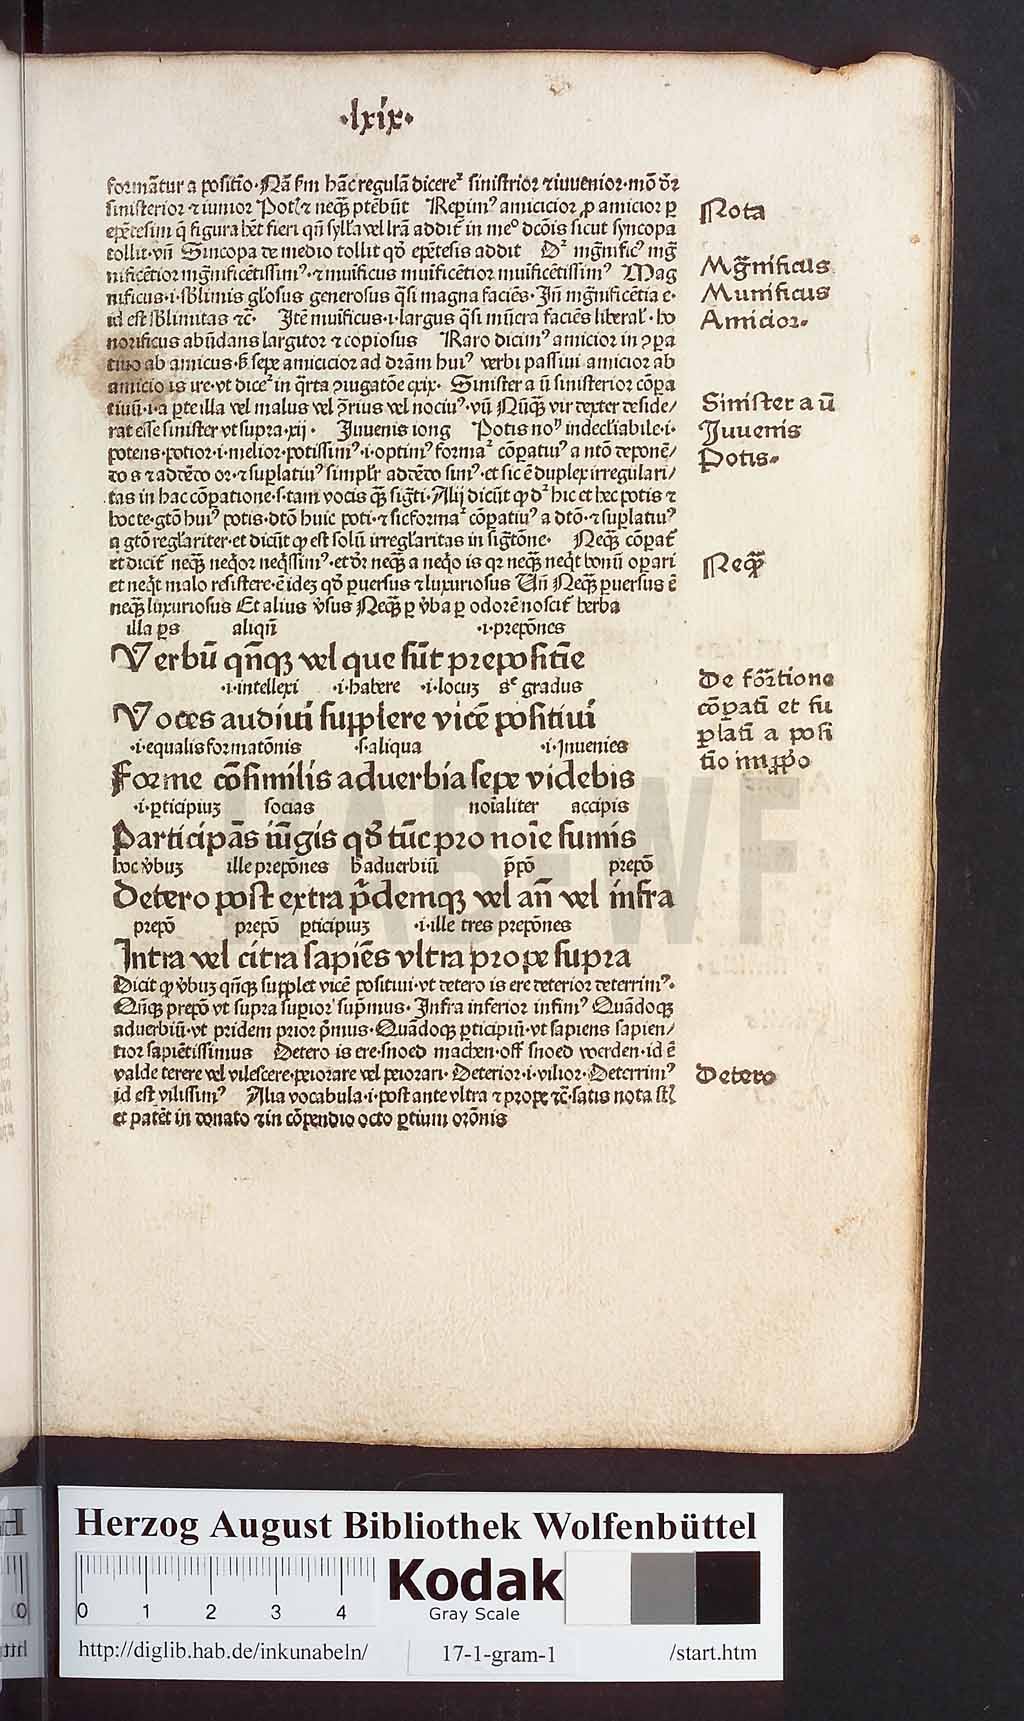 ·lxix·
formātur a positīo·Nā ẜm hāc regulā dicereᷣ sinistrior ⁊ iuvenior·mō dr̄
sinisterior ⁊ iunior Potꝰ ⁊ neqꝫ ptēbūt Reperimꝰ amicicior ꝓ amicior ꝑ
epētesim q̄ figura hēt fieri qn̄ syllaba vel lrā addit̄ in meº dcōis sicut syncopa
tollit·vn̄ Sincopa de medio tollit qd̛ epētesis addit Dᷣ mḡnificꝰ mḡ
nificētior mḡnificētissimꝰ·⁊ muificus muificētior muificētissimꝰ Mag
nificus·i·sblimis gl̄osus generosus q̄si magna faciēs·Jn̄ mḡnificētia e·
id est sblimitas ⁊c̄· Jtē muificus·i·largus q̄si mūera faciēs liberal̛·ho
norificus abūdans largitor ⁊ copiosus Raro dicimꝰ amicior in ꝯpa
tiuo ab amicus·s̛ sepe amicicior ad drām huiꝰ verbi passiui amicior ab
amicio is ire·vt diceᷣ in q̄rta ꝯiugatōe cxix· Sinister a ū sinisterior cōpa
tiuū·i·a ꝑte illa vel malus vel ꝯrius vel nociuꝰ·vn̄ Nūqꝫ vir dexter deside/
rat esse sinister vt supra·xij· Juuenis iong Potis noⁿ indecl̄iabile·i·
potens·potior·i·melior·potissimꝰ·i·optimꝰ formaᷣ cōpatiuꝰ a ntō deponē/
do s ⁊ addēdo or·⁊ suplatiuꝰ simplr̄ addēdo simꝰ·et sic ē duplex irregulari/
tas in hac cōpatione·s·tam vocis qꝫ sigti·Alij dicūt ꝙ dᷣ hic et hec potis ⁊
hoc te·gtō huiꝰ potis·dtō huic poti·⁊ sic formaᷣ cōpatiuꝰ a dtō·⁊ suplatiuꝰ
a gtō reglariter·et dicūt ꝙ est solū irreglaritas in sigtōne· Neqꝫ cōpat̄
et dicit̄ neqꝫ neq̄or neq̄ssimꝰ·et dr̄ neqꝫ a neq̄o is qꝛ neqꝫ neq̄t bonū opari
et neq̄t malo resistere·ē idez qd̛ puersus ⁊ luxuriosus Vn̄ Neqꝫ puersus ē
neqꝫ luxuriosus Et alius v̛sus Neqꝫ ꝑ v̛ba ꝑ odorē noscit̄ herba
illa ps aliqn̄ ·i·prepōnes
Verbū qn̄qꝫ vel que sūt prepositīe
·i·intellexi ·i·habere ·i·locuꝫ sᶜ gradus
Voces audiui supplere vicē positiui
·i·equalis formatōnis ·s·aliqua ·i·Jnuenies
Forme cōsimilis aduerbia sepe videbis
·i·ꝑticipiuꝫ socias noīaliter accipis
Participās iūgis qd̛ tūc pro noīe sumis
hoc v̛buꝫ ille prepōnes h̛ aduerbiū p̄pō prepō
Detero post extra p̄demqꝫ vel an̄ vel infra
prepō prepō ꝑticipiuꝫ ·i·ille tres prepōnes
Jntra vel citra sapiēs vltra prope supra
Dicit ꝙ v̛buꝫ qn̄qꝫ supplet vicē positiui·vt detero is ere deterior deterrimꝰ·
Qn̄qꝫ prepō vt supra superior supmus·Jnfra inferior infimꝰ Quādoqꝫ
aduerbiū·vt pridem prior p̄mus·Quādoqꝫ ꝑticipiū·vt sapiens sapien/
tior sapiētissimus Detero is ere·snoed machen·off snoed werden·id ē
valde terere vel vilescere·peiorare vel peiorari·Deterior·i·vilior·Deterrimꝰ
id est vilissimꝰ Alia vocabula·i·post ante vltra ⁊ prope ⁊c̄·satis nota st̄
et patēt in donato ⁊ in cōpendio octo ꝑtium orōnis
Nota
Mḡnificus
Munificus
Amicior·
Sinister a ū
Juuenis
Potis·
Neqꝫ
De formtione
cōpati et su
plati a posi
tio imꝓpo
Detero
HAB WF
Herzog August Bibliothek Wolfenbüttel
0 1 2 3 4
Kodak
Gray Scale
http://diglib.hab.de/inkunabeln/ 17-1-gram-1 /start.htm